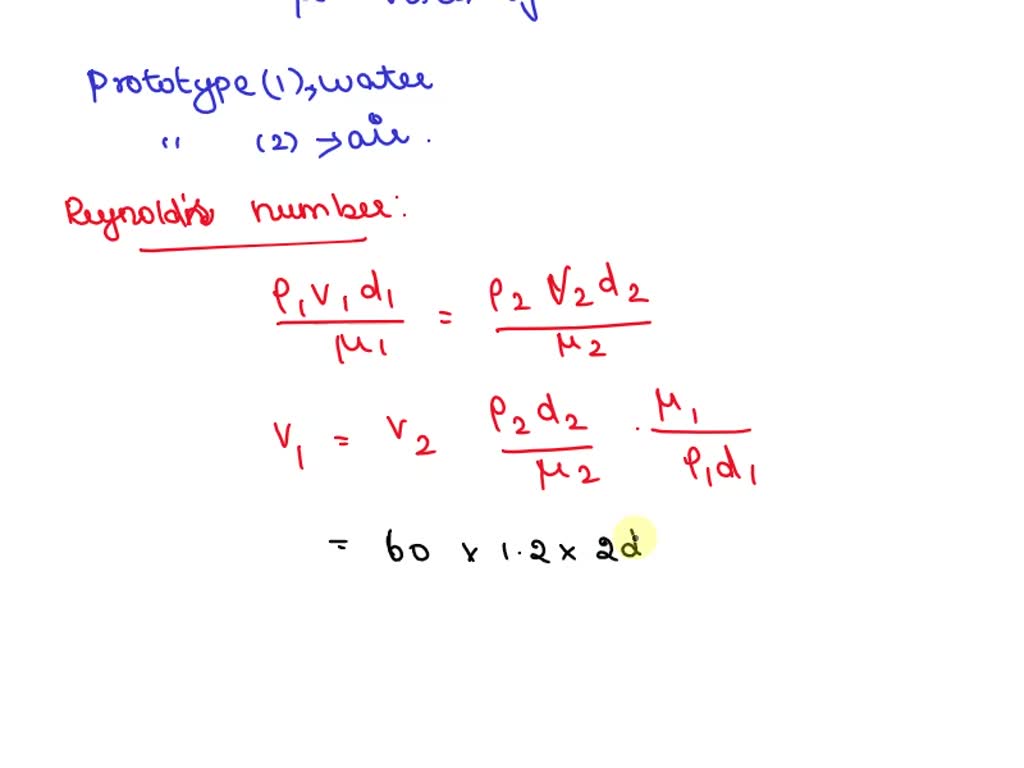 Prototype (1), water
" (2) → air.
Reynold's number:
ρ₁ v₁ d₁ / μ₁ = ρ₂ V₂ d₂ / μ₂
v₁ = v₂ ρ₂ d₂ / μ₂ · μ₁ / ρ₁ d₁
= 60 x 1.2 x 2d